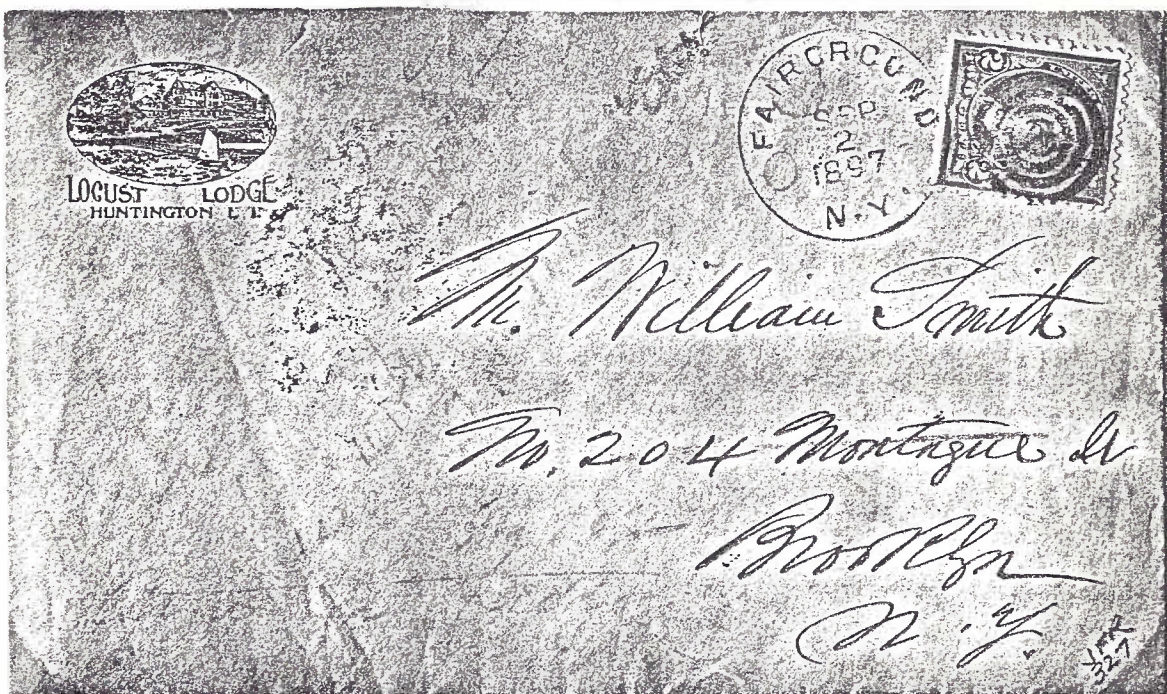 LOCUST LODGE
HUNTINGTON L I.
FAIRGROUND
SEP
2
1897
N.Y.
Mr. William Smith
No. 204 Montague St
Brooklyn
N.Y.
327